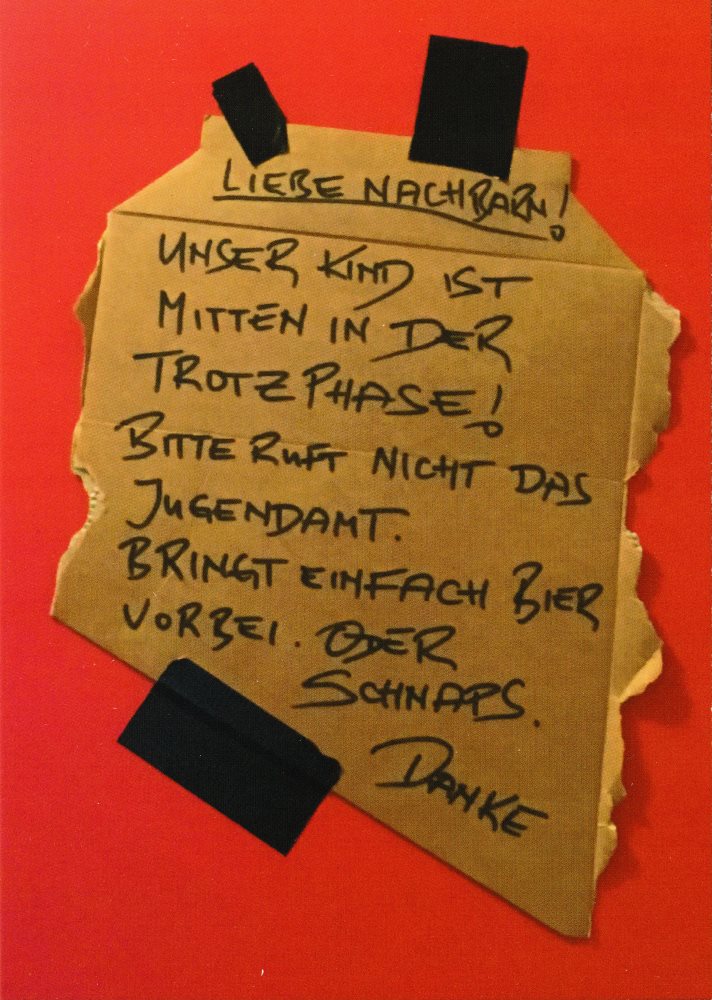 LIEBE NACHBARN!
UNSER KIND IST
MITTEN IN DER
TROTZPHASE!
BITTE RUFT NICHT DAS
JUGENDAMT.
BRINGT EINFACH BIER
VORBEI. ODER
SCHNAPS.
DANKE